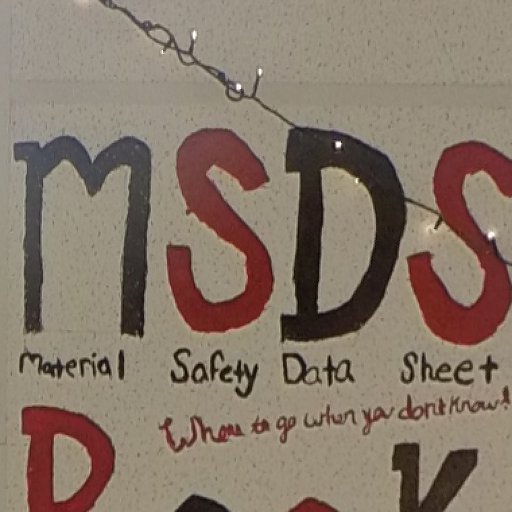 MSDS
Material Safety Data Sheet
Where to go when you don't know!